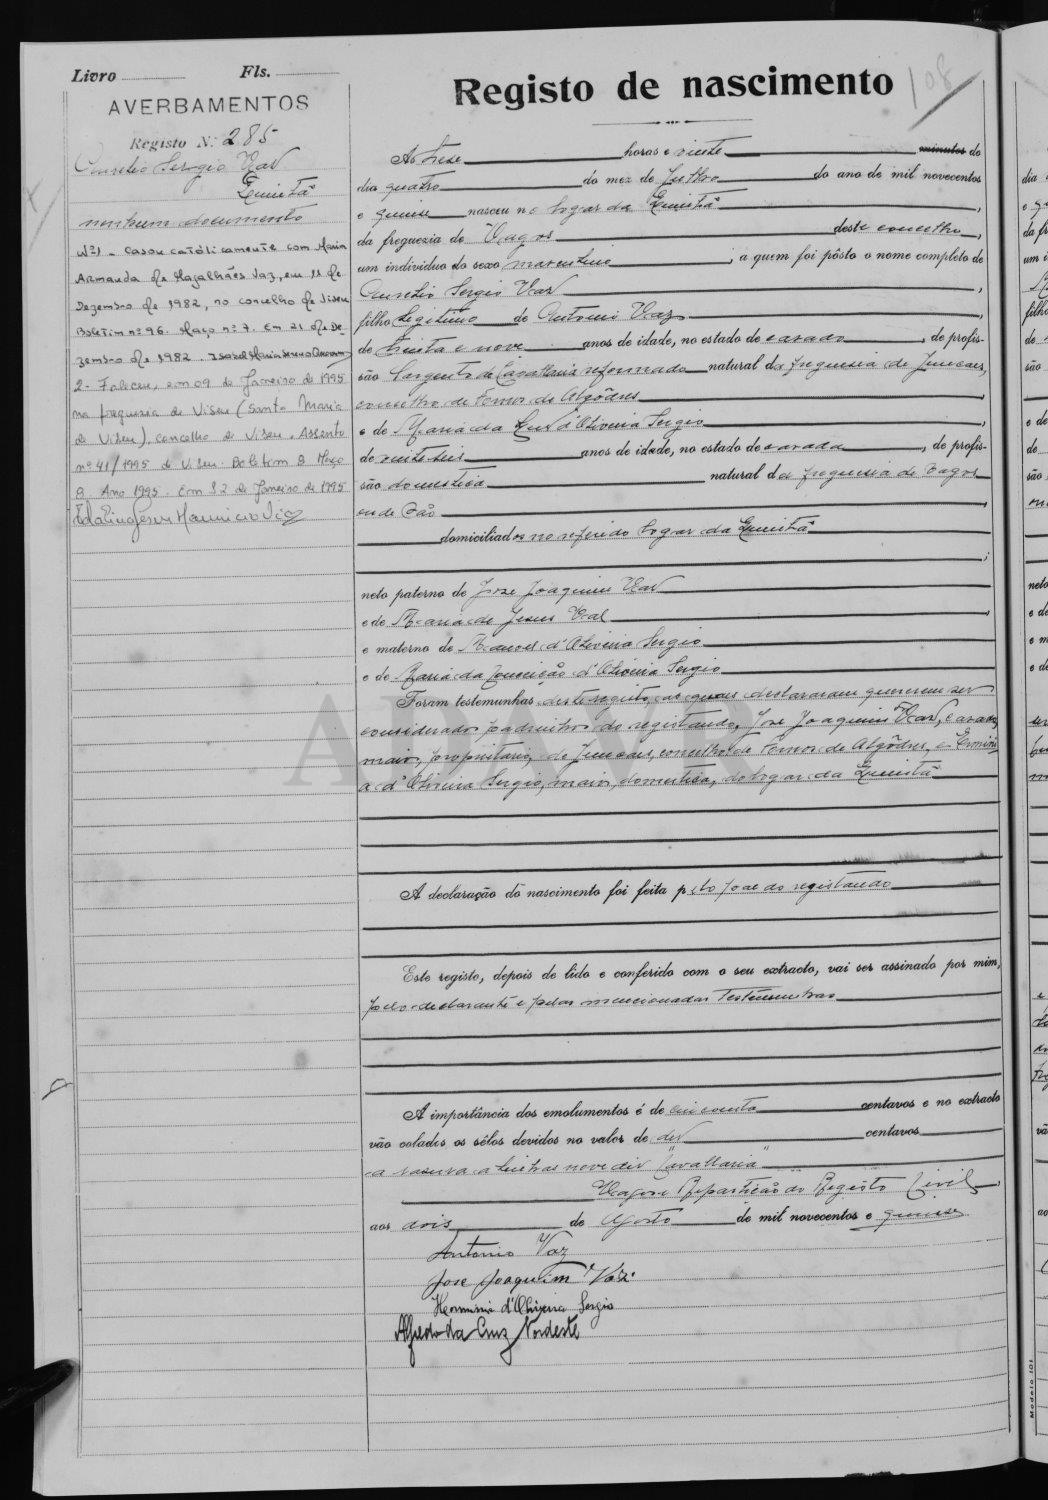 Livro Fls.
AVERBAMENTOS
Registo N.º 285
Aurelio Sergio Vaz
Quintã
nenhum documento
Nº1 - Casou catolicamente com Maria
Armanda de Magalhães Vaz, em 11 de
Dezembro de 1982, no concelho de Viseu
Boletim nº 96. Maço nº 7. Em 21 de De-
zembro de 1982. Isabel Maria
2- Faleceu, em 09 de Janeiro de 1995
na freguesia de Viseu (Santa Maria
de Viseu), concelho de Viseu. Assento
nº 41/1995 de Viseu. Boletim 8 Maço
8 Ano 1995. Em 12 de Janeiro de 1995
Registo de nascimento
108
Ás trese horas e vinte minutos do
dia quatro do mez de Julho do ano de mil novecentos
e quinse nasceu no logar da Quintã,
da freguezia de Vagos deste concelho,
um individuo do sexo masculino, a quem foi pôsto o nome completo de
Aurelio Sergio Vaz,
filho legitimo de Antonio Vaz,
de trinta e nove anos de idade, no estado de casado, de profis-
são Sargento de Cavallaria reformado natural da freguesia de Juncaes,
concelho de Fornos de Algôdres,
e de Maria da Luz d'Oliveira Sergio,
de vinte seis anos de idade, no estado de casada, de profis-
são domestica natural da freguesia de Vagos
onde são
domiciliados no referido logar da Quintã
;
neto paterno de Jose Joaquim Vaz
e de Maria de Jesus Vaz,
e materno de Manoel d'Oliveira Sergio
e de Maria da Conceição d'Oliveira Sergio
Foram testemunhas deste registo, as quaes declararam quererem ser
considerados padrinhos do registando, Jose Joaquim Vaz, casado,
maior, proprietario, de Juncaes, concelho de Fornos de Algôdres, e Ermini
a d'Oliveira Sergio, maior, domestica, do logar da Quintã
A declaração do nascimento foi feita pelo pae do registando
Este registo, depois de lido e conferido com o seu extracto, vai ser assinado por mim,
pelo declarante e pelas mencionadas testemunhas
A importância dos emolumentos é de cincoenta centavos e no extracto
vão colados os sêlos devidos no valor de dez centavos
a rasura a linhas nove diz "Cavallaria"
Vagos e Repartição do Registo Civil,
aos dois de Agosto de mil novecentos e quinse
Antonio Vaz
Jose Joaquim Vaz
Herminia d'Oliveira Sergio
Alfredo da Cruz Nordeste
Modelo 101